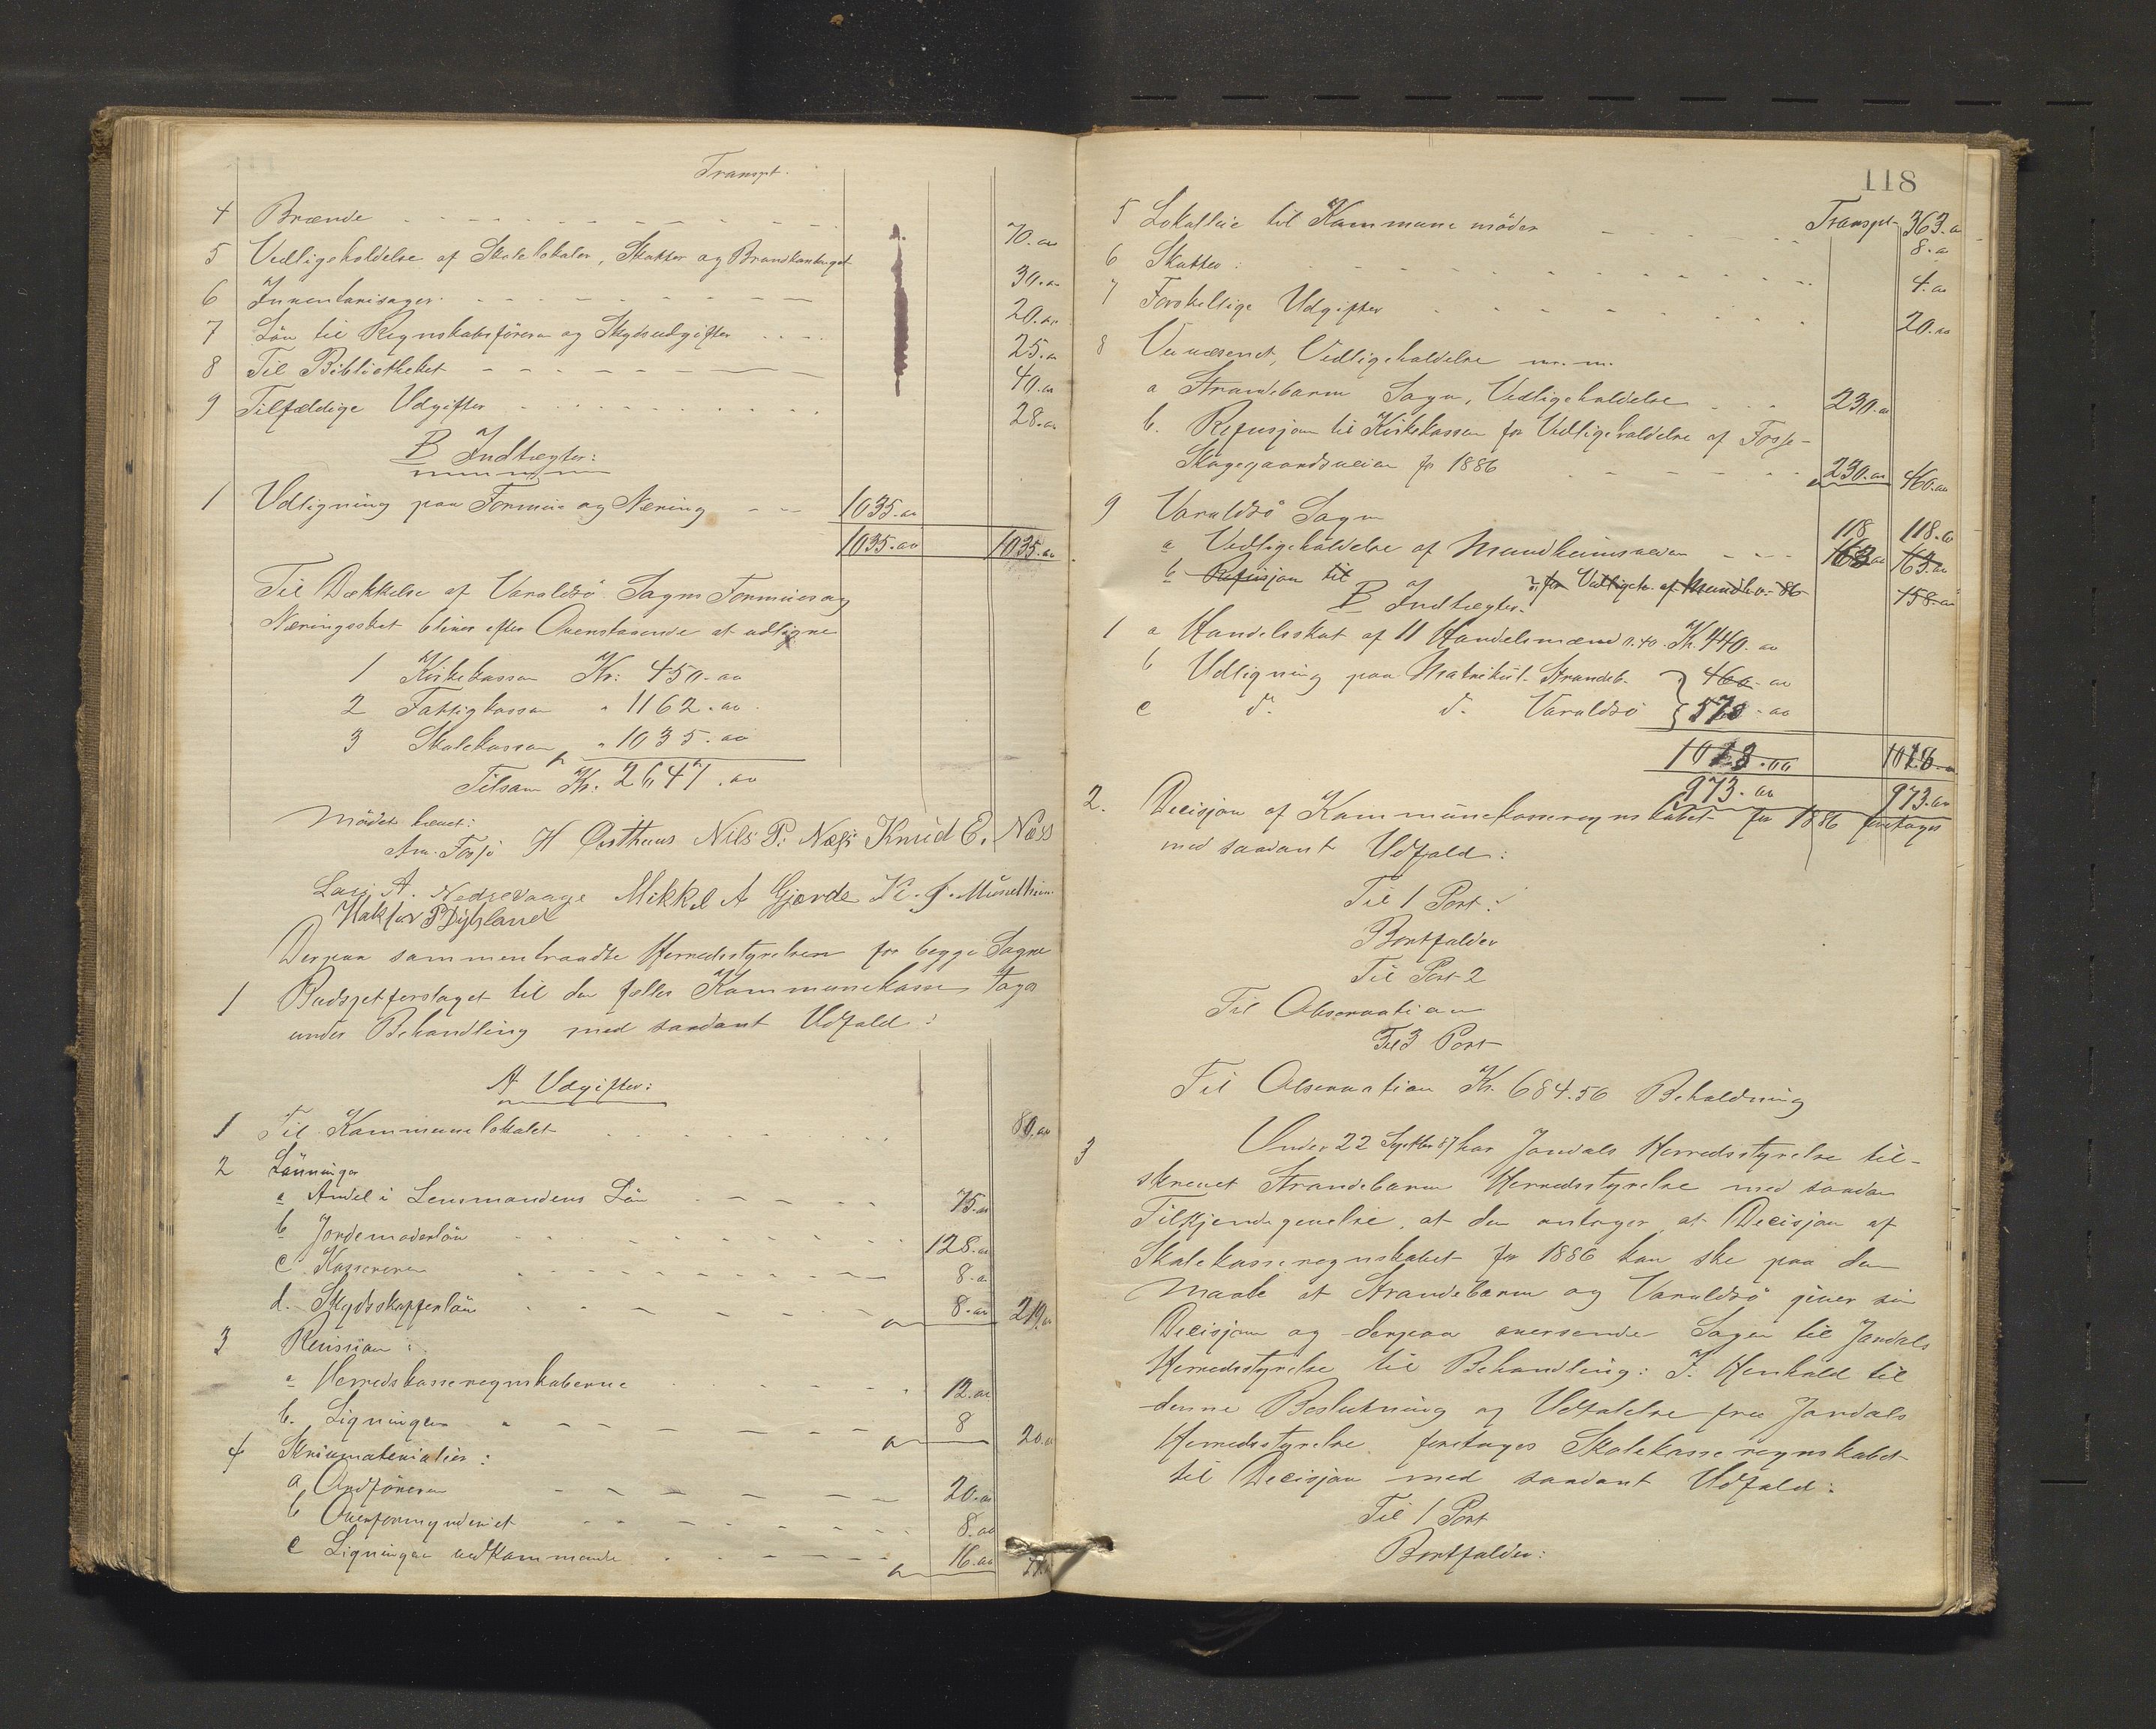 Transpt.
4 Brænde 70.00
5 Vedligeholdelse af Skolelokaler, Skatter og Brandkontingent 30.00
6 Inventarisager 20.00
7 Løn til Regnskabsføreren og Skydsudgifter 25.00
8 Til Bibliotheket 40.00
9 Tilfældige Udgifter 28.00
B Indtægter:
1 Udligning paa Formue og Næring 1035.00
1035.00 1035.00
Til Dækkelse af Varaldsö Sogns Formues og
Næringsskat bliver efter Ovenstaaende at udligne
1 Kirkekassen Kr: 450.00
2 Fattigkassen " 1162.00
3 Skolekassen " 1035.00
Tilsam Kr. 2647.00
Mödet hævet:
Am. Fosse H Østhuus Nils P. Næss Knud E. Næss
Lars A. Nedrevaage Mikkel A Gjerde K. J. Mundheim
Derpaa sammentraadte Herredsstyrelsen for begge Sogne
1 Budgetforslaget til den fælles Kommunekasse toges
under Behandling med saadant Udfald:
A Udgifter:
1 Til Kommunelokalet 80.00
2 Lönninger
a Andel i Lensmandens Lön 75.00
b Jordemoderlön 128.00
c Kassereren 8.00
d. Skydsskafferlön 8.00 219.00
3 Revision:
a Herredskasseregnskaberne 12.00
b. Ligningen 8 20.00
4 Skrivmaterialier:
a Ordföreren 20.00
b Overformynderiet 8.00
c Ligningen vedkommende 16.00
118
Transpt 363.00
5 Lokalleie til Kommunemöder 8.00
6 Skatter: 4.00
7 Forskellige Udgifter 20.00
8 Veivæsenet, Vedligeholdelse m.m.
a Strandebarm Sogn, Vedligeholdelse 230.00
b. Refusjon til Kirkekassen for Vedligeholdelse af Fosse-
Skogegaardsveien for 1886 230.00 460.00
9 Varaldsö Sogn
a Vedligeholdelse af Mundheimsveien 118 118.00
163.00
b Refusjon til for Vedligeh. af Mundh.v. 86
158.00
B Indtægter.
1 a Handelsskat af 11 Handelsmænd á 40 Kr. 440.00
b Udligning paa Matrikul. Strandeb. 460.00
c do. do. Varaldsö
973.00 973.00
2. Decisjon af Kommunekasseregnskabet for 1886 foretoges
med saadant Udfald:
Til 1 Post:
Bortfalder
Til Post 2
Til Observation
Til 3 Post
Til Observation Kr. 684.56 Beholdning
3 Under 22 Septbr 87 har Jondals Herredsstyrelse til-
skrevet Strandebarm Herredsstyrelse med saadan
Tilkjendegivelse, at den antager at Decisjon af
Skolekasseregnskabet for 1886 kan ske paa den
Maade at Strandebarm og Varaldsö giver sin
Decisjon og derpaa oversende Sagen til Jondals
Herredsstyrelse til Behandling: I Henhold til
denne Beslutning og Udtalelse fra Jondals
Herredsstyrelse foretoges Skolekasseregnskabet
til Decisjon med saadant Udfald:
Til 1 Post
Bortfalder: